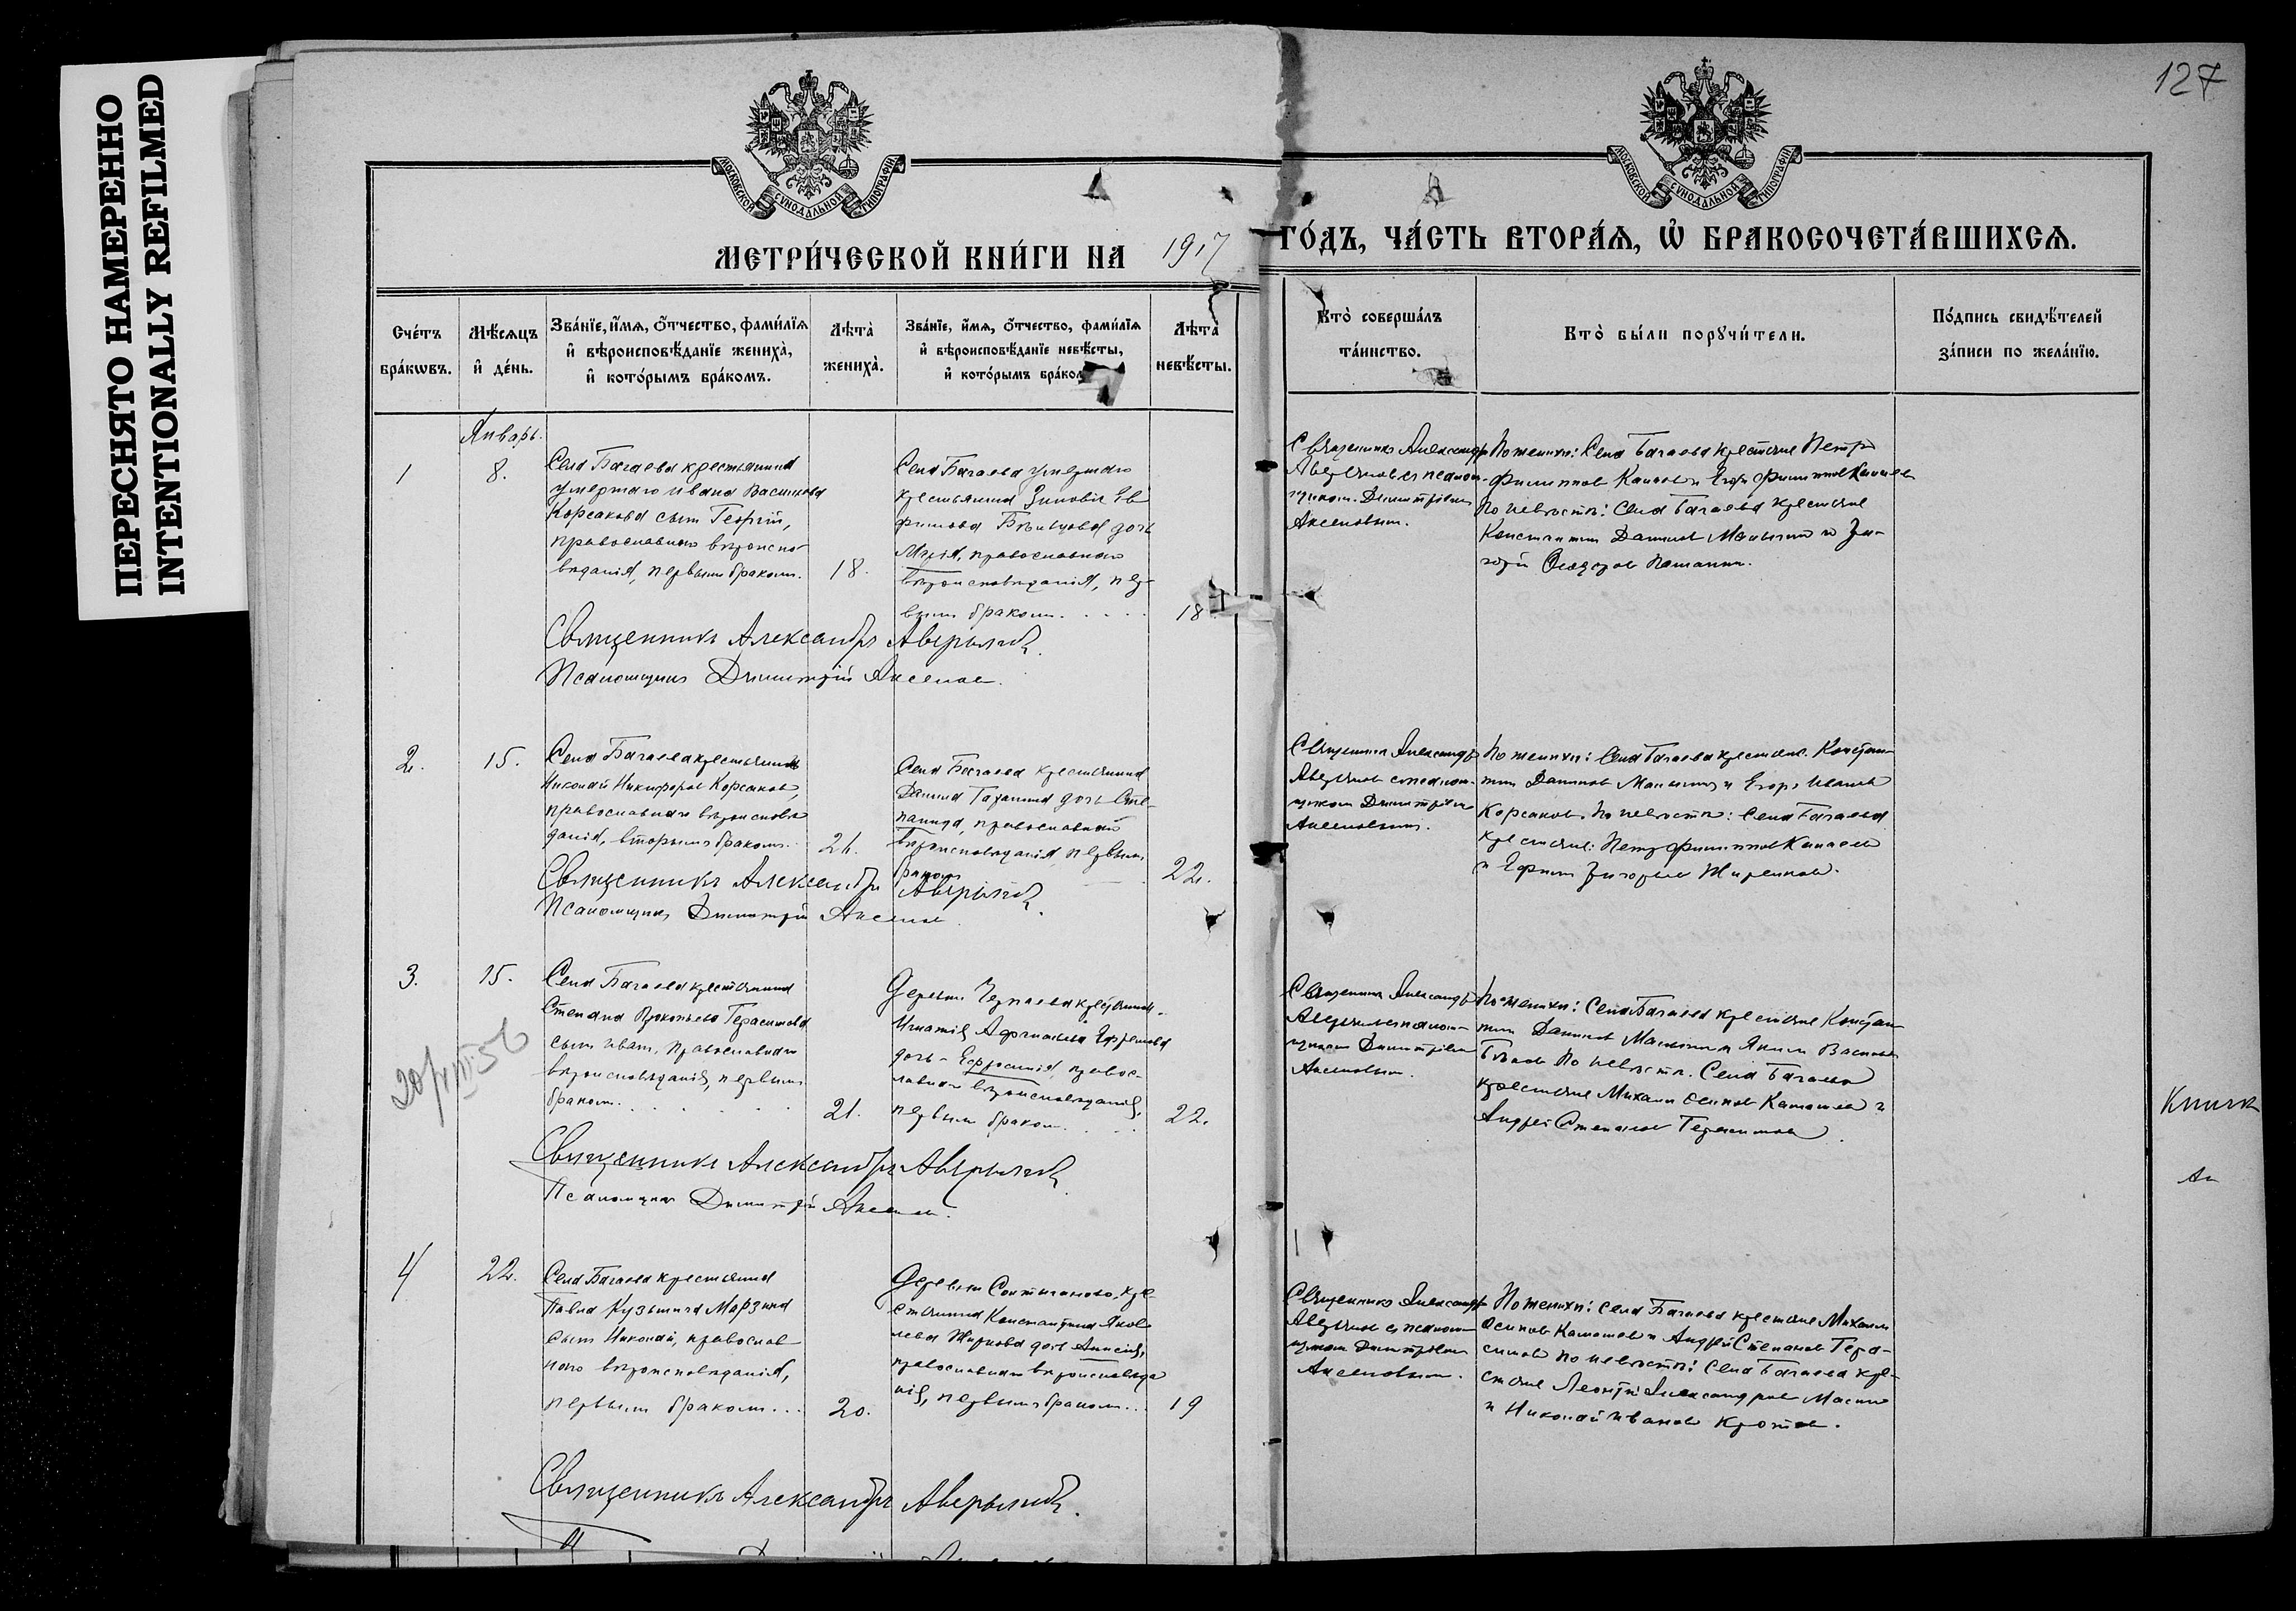 ПЕРЕСНЯТО НАМЕРЕННО
INTENTIONALLY REFILMED
127
МОСКОВСКОЙ СѴНОДАЛЬНОЙ ТИПОГРАФІИ
МОСКОВСКОЙ СѴНОДАЛЬНОЙ ТИПОГРАФІИ
МЕТРИ́ЧЕСКОЙ КНИ́ГИ НА 1917 ГО́ДЪ, ЧА́СТЬ ВТОРА́Я, Ѡ БРАКОСОЧЕТА́ВШИХСЯ.
Сче́тъ
бра́кѡвъ.
Мѣ́сяцъ
и де́нь.
Зва́нїе, и́мя, о́тчество, фами́лїя
и вѣроисповѣ́данїе жениха̀,
и кото́рымъ бра́комъ.
Лѣта̀
жениха̀.
Зва́нїе, и́мя, о́тчество, фами́лїя
и вѣроисповѣ́данїе невѣ́сты,
и кото́рымъ бра́ком
Лѣта̀
невѣ́сты.
Кто̀ соверша́лъ
та́инство.
Кто̀ бы́ли порꙋчи́тели.
По́дпись свидѣ́телей
за́писи по жела́нїю.
Январь.
1
8.
Села Багаева крестьянина
умершаго Ивана Васильева
Корсакова сынъ Георгій,
православнаго вѣроиспо-
вѣданія, первымъ бракомъ.
18.
Села Багаева умершаго
крестьянина Зиновія Ев
фимова дочь
Марія, православнаго
вѣроисповѣданія, пер-
вымъ бракомъ.
18
Священникъ Александръ
Аверьяновъ съ псалом-
щиком. Димитріемъ
Аксеновымъ.
По женихѣ: Села Багаева крестьяне Петръ
Филипповъ и Егоръ Филипповъ
По невѣстѣ: Села Багаева крестьяне
Константинъ Даниловъ и Гри-
горій Ѳедоровъ
Священникъ Александръ Аверьяновъ.
Псаломщикъ Димитрій Аксеновъ.
2.
15.
Села Багаева крестьянинъ
Николай Никифоровъ Корсаковъ,
православнаго вѣроисповѣ
данія, вторымъ бракомъ.
Села Багаева крестьянина
Данила дочь Сте-
панида, православнаго
вѣроисповѣданія первымъ
бракомъ
22.
Священникъ Александръ
Аверьяновъ съ псалом-
щикомъ Димитріемъ
Аксеновымъ.
По женихѣ: Села Багаева крестьяне: Констан-
тинъ Даниловъ и Егоръ Ивановъ
Корсаковъ. По невѣстѣ: Села Багаева
крестьяне: Петръ Филипповъ
и Ефимъ Григорьевъ
Священникъ Александръ Аверьяновъ.
Псаломщикъ Димитрій Аксеновъ.
3.
15.
Села Багаева крестьянина
Степана Прокопьева Герасимова
сынъ Иванъ, православнаго
вѣроисповѣданія, первымъ
бракомъ.
21.
Деревни крестьянина
Игнатія Ефремова
дочь - Евфросинія, правос-
лавнаго вѣроисповѣданія,
первымъ бракомъ.
22.
Священникъ Александръ
Аверьяновъ съ псалом-
щикомъ Димитріемъ
Аксеновымъ.
По женихѣ: Села Багаева крестьяне Констан-
тинъ Даниловъ и Якимъ Васильевъ
По невѣстѣ. Села Багаева
крестьяне Михаилъ Осиповъ и
Андрей Степановъ Герасимовъ
Священникъ Александръ Аверьяновъ
Псаломщикъ Димитрій Аксеновъ.
4
22.
Села Багаева крестьянина
Павла Кузьмича Марзина
сынъ Николай, православ
наго вѣроисповѣданія,
первымъ бракомъ...
20.
Деревни кре-
стьянина Константина Яков
лева Жиркова дочь Анисія,
православнаго вѣроисповѣда
нія, первымъ бракомъ..
19
Священникъ Александръ
Аверьяновъ съ псалом-
щикомъ Димитріемъ
Аксеновымъ.
По женихѣ: Села Багаева крестьяне Михаилъ
Осиповъ и Андрей Степановъ Гера-
симовъ По невѣстѣ: Села Багаева кре-
стьяне Леонтій Александровъ
и Николай Ивановъ Кротовъ.
Священникъ Александръ Аверьяновъ.